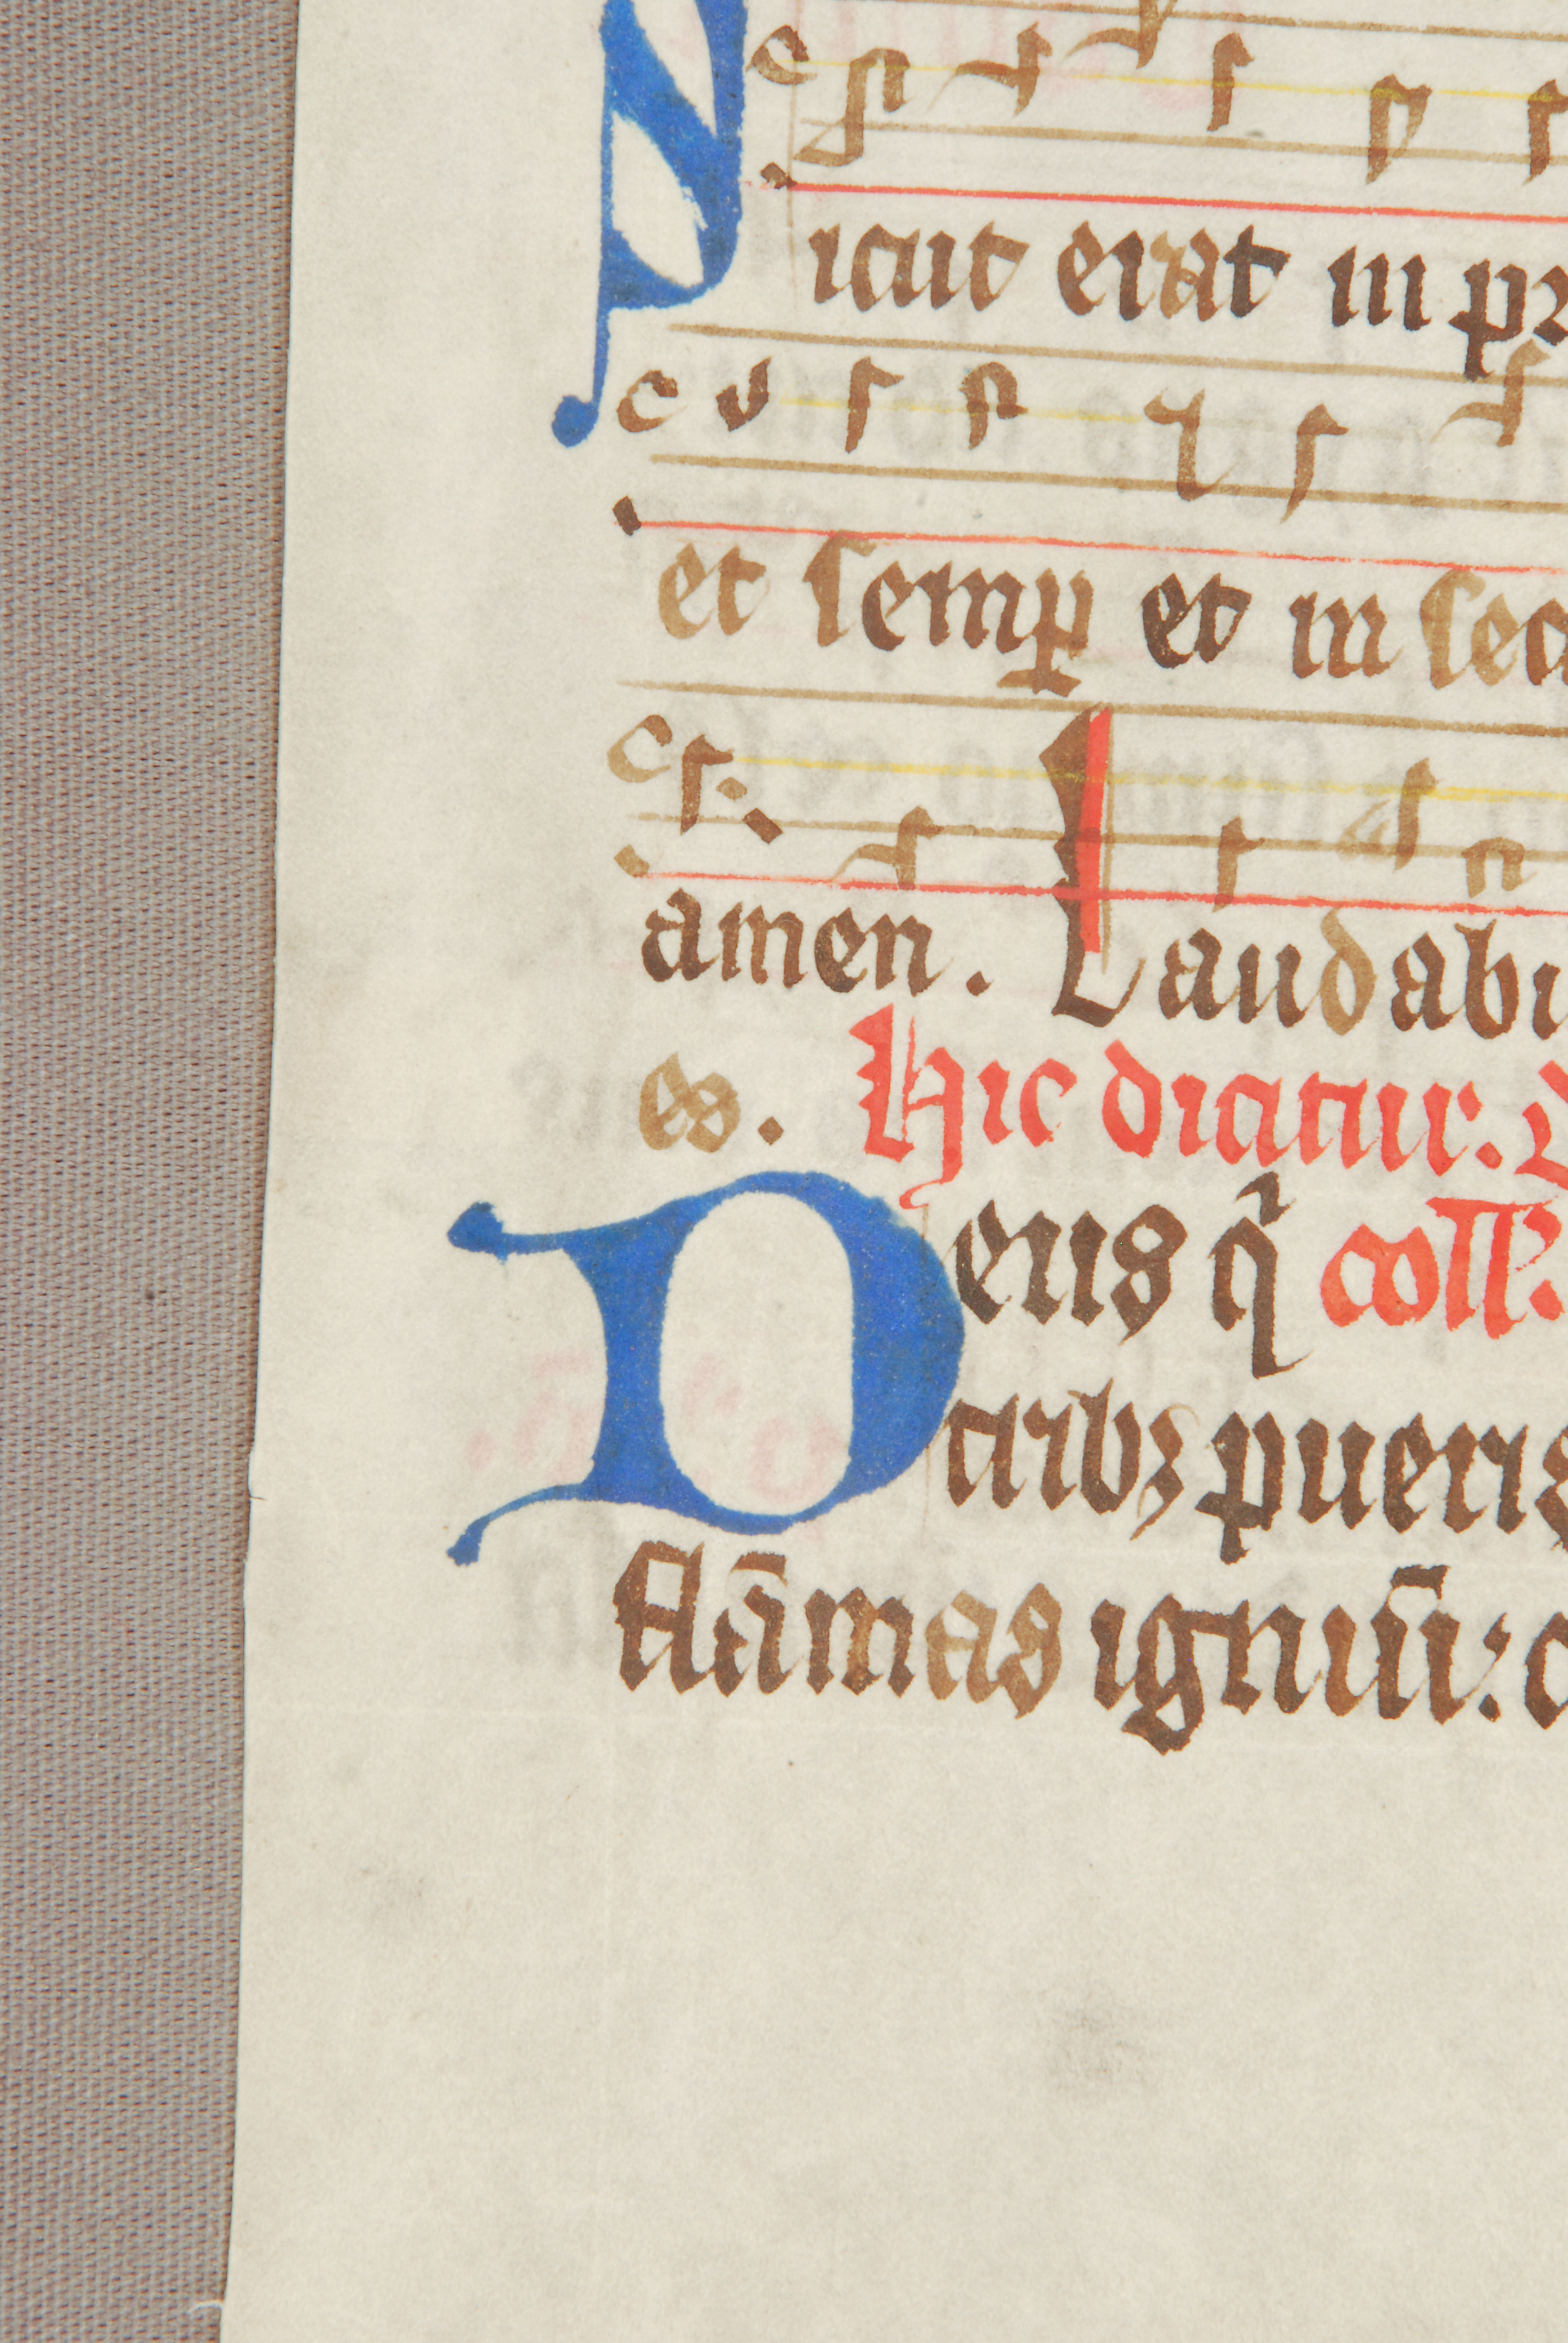 Sicut erat in pr
et semꝑ et in sec
amen. Laudabi
es. Hic dicitur.
Deus qͥ coll.
tribꝫ pueris
flāmas igniū: c